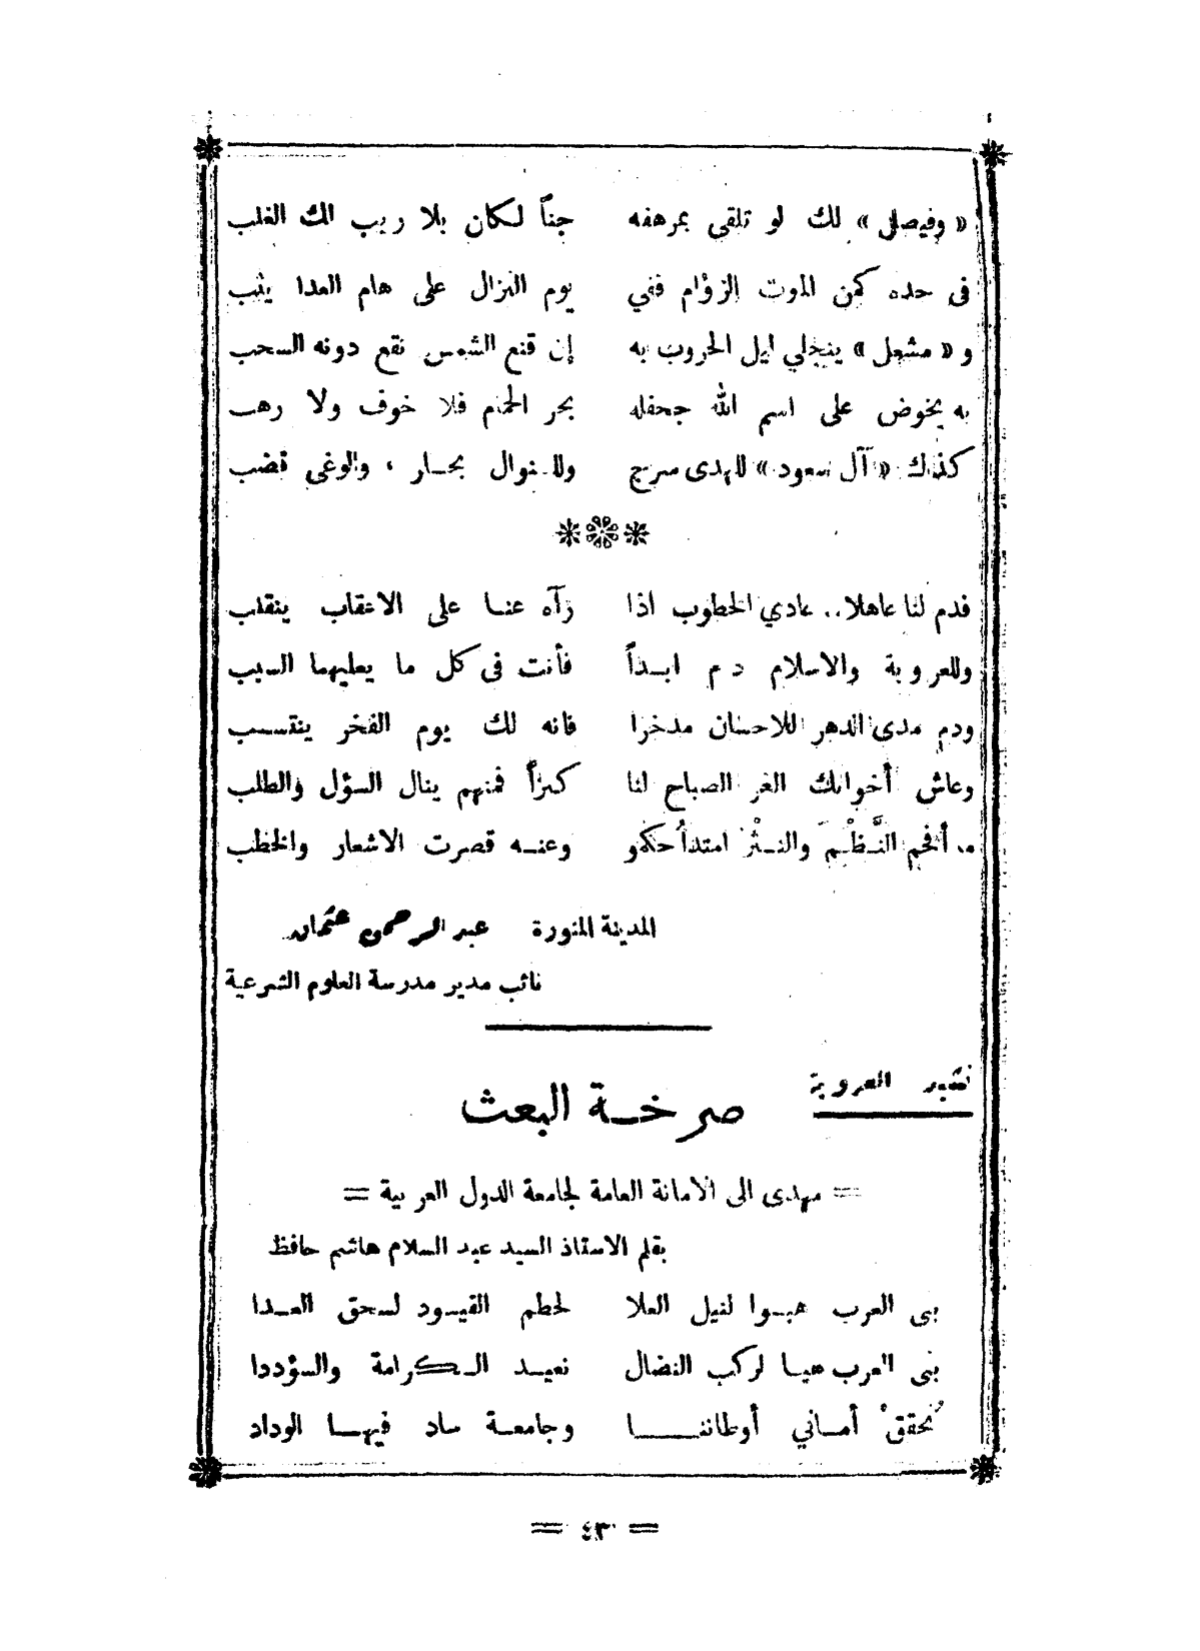 « وفيصل » لك لو تلقى بمرهفه جناً لكان بلا ريب لك الغلب
فى حده كمن الموت الزؤام ففي يوم النزال على هام العدا يثب
و « مشعل » ينجلي ليل الحروب به إن قنع الشمس نقع دونه السحب
به يخوض على اسم الله جحفله بحر الحمام فلا خوف ولا رهب
كذلك « آل سعود » للهدى سرج وللنوال بحار ، والوغى قضب
فدم لنا عاهلا .. عادي الخطوب اذا رآه عنا على الاعقاب ينقلب
وللعروبة والاسلام دم ابداً فأنت فى كل ما يعليهما السبب
ودم مدى الدهر للاحسان مدخرا فانه لك يوم الفخر ينتسب
وعاش أخوانك الغر الصباح لنا كنزاً فمنهم ينال السؤل والطلب
ما أفحم النَّظْمَ والنثْرَ امتداحكمو وعنه قصرت الاشعار والخطب
المدينة المنورة عبد الرحمن عثمان
نائب مدير مدرسة العلوم الشرعية
نشيد العروبة
صرخة البعث
= مهدى الى الامانة العامة لجامعة الدول العربية =
بقلم الاستاذ السيد عبد السلام هاشم حافظ
بنى العرب هبوا لنيل العلا لحطم القيود لسحق العدا
بنى العرب هيا لركب النضال نعيد الكرامة والسؤددا
نُحقق أماني أوطاننا وجامعة ساد فيها الوداد
= ٤٣٠ =